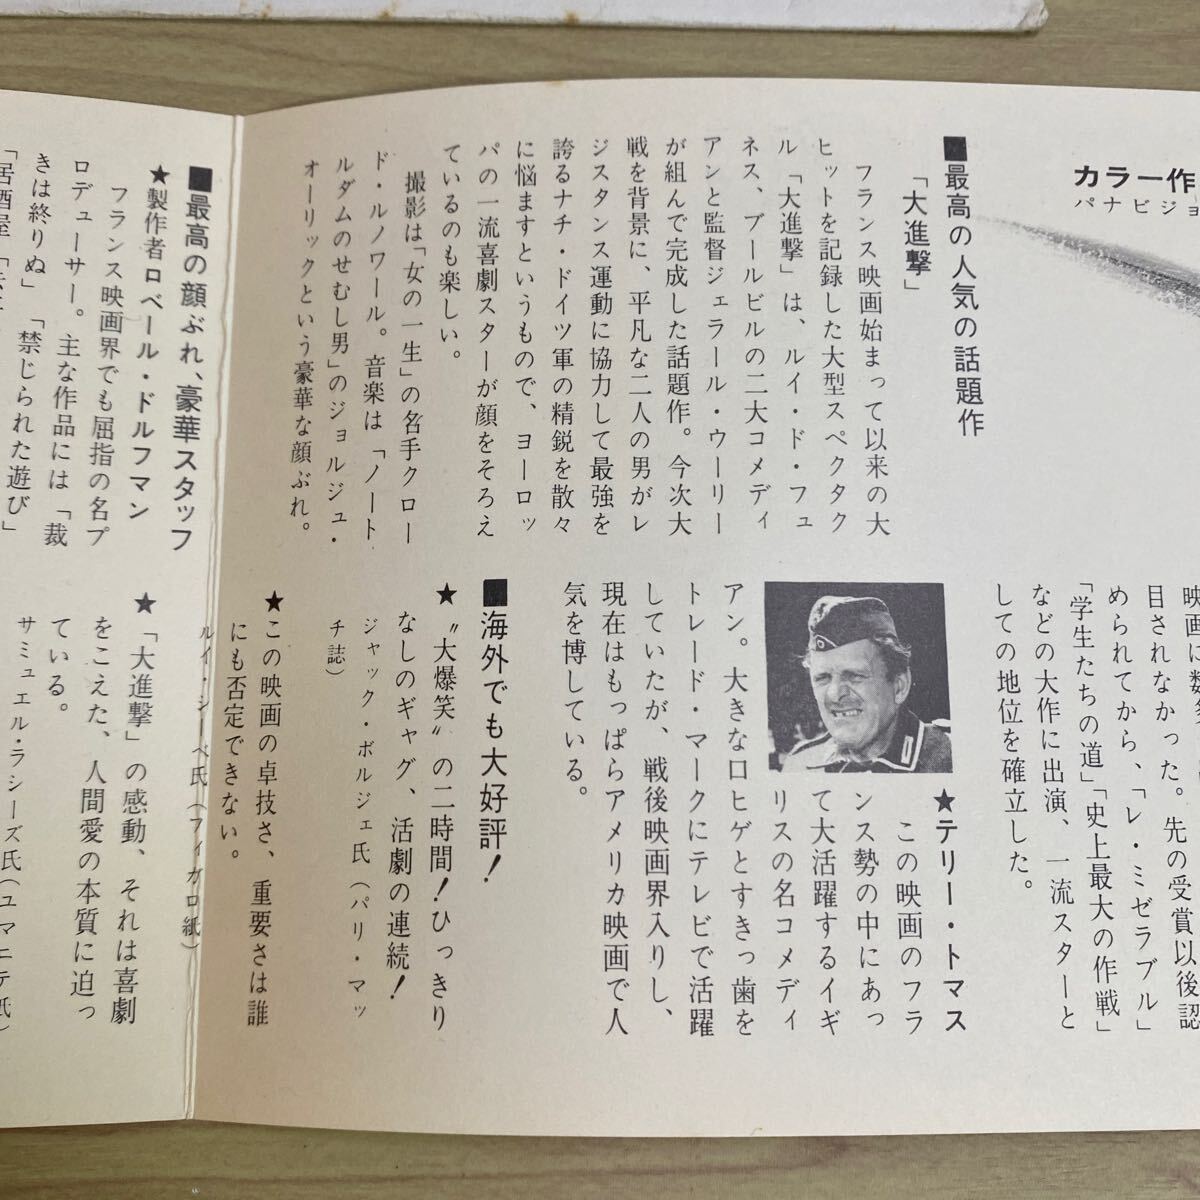 カラー作
パナビジョ
■最高の人気の話題作
「大進撃」
フランス映画始まって以来の大
ヒットを記録した大型スペクタク
ル「大進撃」は、ルイ・ド・フュ
ネス、ブールビルの二大コメディ
アンと監督ジェラール・ウーリー
が組んで完成した話題作。今次大
戦を背景に、平凡な二人の男がレ
ジスタンス運動に協力して最強を
誇るナチ・ドイツ軍の精鋭を散々
に悩ますというもので、ヨーロッ
パの一流喜劇スターが顔をそろえ
ているのも楽しい。
撮影は「女の一生」の名手クロー
ド・ルノワール。音楽は「ノート
ルダムのせむし男」のジョルジュ・
オーリックという豪華な顔ぶれ。
■最高の顔ぶれ、豪華スタッフ
★製作者ロベール・ドルフマン
フランス映画界でも屈指の名プ
ロデューサー。主な作品には「裁
きは終りぬ」「禁じられた遊び」
「居酒屋」
映画に数多
目されなかった。先の受賞以後認
められてから、「レ・ミゼラブル」
「学生たちの道」「史上最大の作戦」
などの大作に出演、一流スターと
しての地位を確立した。
★テリー・トマス
この映画のフラ
ンス勢の中にあっ
て大活躍するイギ
リスの名コメディ
アン。大きな口ヒゲとすきっ歯を
トレード・マークにテレビで活躍
していたが、戦後映画界入りし、
現在はもっぱらアメリカ映画で人
気を博している。
■海外でも大好評!
★〝大爆笑〟の二時間!ひっきり
なしのギャグ、活劇の連続!
ジャック・ボルジェ氏(パリ・マッ
チ誌)
★この映画の卓技さ、重要さは誰
にも否定できない。
ルイ・シーベ氏(フィガロ紙)
★「大進撃」の感動、それは喜劇
をこえた、人間愛の本質に迫っ
ている。
サミュエル・ラシーズ氏(ユマニテ紙)